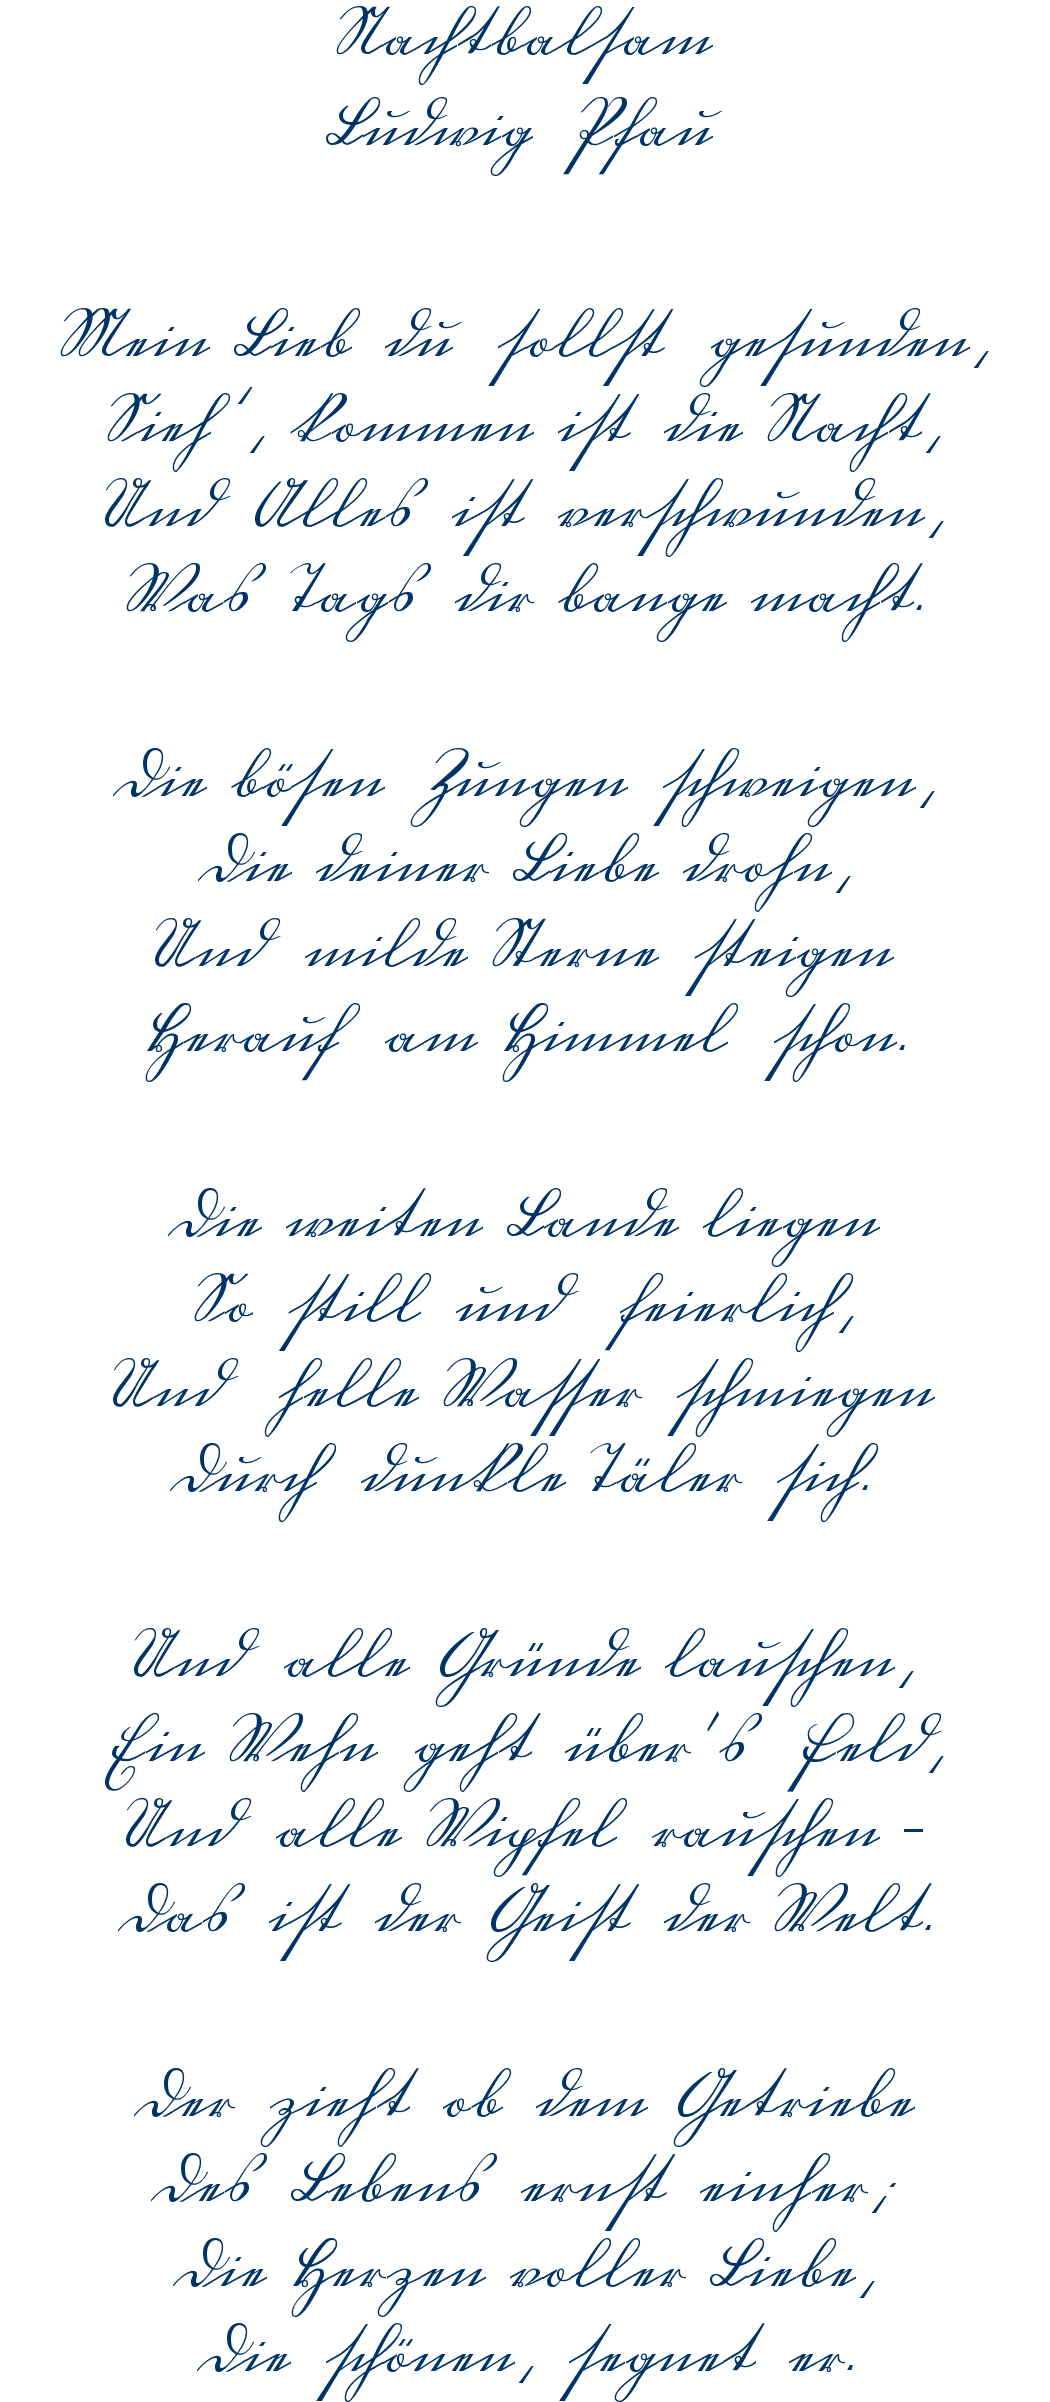 Nachtbalsam
Ludwig Pfau
Mein Lieb du sollst gesunden,
Sieh', kommen ist die Nacht,
Und Alles ist verschwunden,
Was Tags dir bange macht.
Die bösen Zungen schweigen,
Die deiner Liebe drohn,
Und milde Sterne steigen
Herauf am Himmel schon.
Die weiten Lande liegen
So still und feierlich,
Und helle Wasser schmiegen
Durch dunkle Täler sich.
Und alle Gründe lauschen,
Ein Wehn geht über's Feld,
Und alle Wipfel rauschen -
Das ist der Geist der Welt.
Der zieht ob dem Getriebe
Des Lebens ernst einher;
Die Herzen voller Liebe,
Die schönen, segnet er.